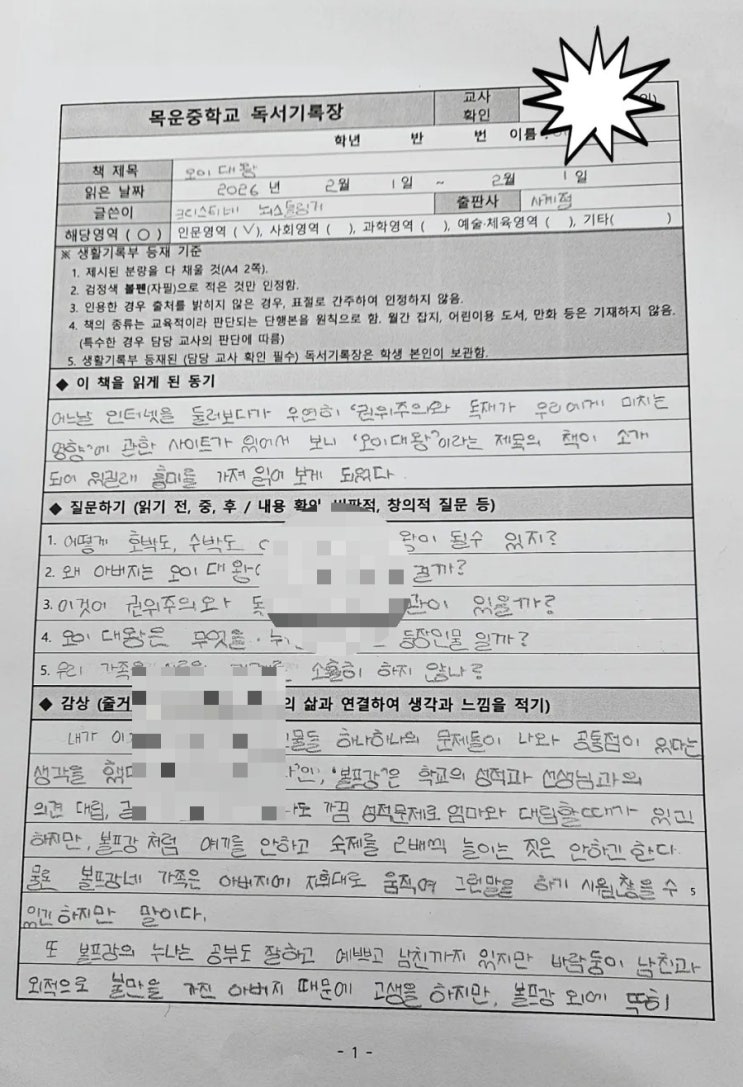 목운중학교 독서기록장
교사
확인
학년 반 번 이름 :
책 제목 오이 대왕
읽은 날짜 2026 년 2월 1일 ~ 2월 1일
글쓴이 뇌스틀링거 출판사 사계절
해당영역 ( ○ ) 인문영역 ( √ ), 사회영역 ( ), 과학영역 ( ), 예술·체육영역 ( ), 기타( )
※ 생활기록부 등재 기준
1. 제시된 분량을 다 채울 것(A4 2쪽).
2. 검정색 볼펜(자필)으로 적은 것만 인정함.
3. 인용한 경우 출처를 밝히지 않은 경우, 표절로 간주하여 인정하지 않음.
4. 책의 종류는 교육적이라 판단되는 단행본을 원칙으로 함. 월간 잡지, 어린이용 도서, 만화 등은 기재하지 않음.
(특수한 경우 담당 교사의 판단에 따름)
5. 생활기록부 등재된 (담당 교사 확인 필수) 독서기록장은 학생 본인이 보관함.
◆ 이 책을 읽게 된 동기
어느날 인터넷을 둘러보다가 우연히 '권위주의와 독재가 우리에게 미치는
영향'에 관한 사이트가 있어서 보니 '오이대왕'이라는 제목의 책이 소개
되어 있길래 흥미를 가져 읽어 보게 되었다.
◆ 질문하기 (읽기 전, 중, 후 / 내용 확인, 비판적, 창의적 질문 등)
1. 어떻게 호박도, 수박도 왕이 될수 있지?
2. 왜 아버지는 오이 대왕 걸까?
3. 이것이 권위주의와 독 관이 있을까?
4. 오이 대왕은 무엇을 등장인물 일까?
5. 우리 가족은 소홀히 하지 않나?
◆ 감상 (줄거 의 삶과 연결하여 생각과 느낌을 적기)
내가 이 인물들 하나하나의 문제들이 나와 공통점이 있다는
생각을 했다 인, '볼프강'은 학교의 성적과 선생님과의
의견 대립, 나도 가끔 성적문제로 엄마와 대립할때가 있긴
하지만, 볼프강 처럼 얘기를 안하고 숙제를 2배씩 늘이는 짓은 안하긴 한다.
물론 볼프강네 가족은 아버지에 지휘대로 움직여 그런말을 하기 시원찮을 수 5
있긴 하지만 말이다.
또 볼프강의 누나는 공부도 잘하고 예쁘고 남친까지 있지만 바람둥이 남친과
외적으로 불만을 가진 아버지 때문에 고생을 하지만, 볼프강 외에 딱히
- 1 -